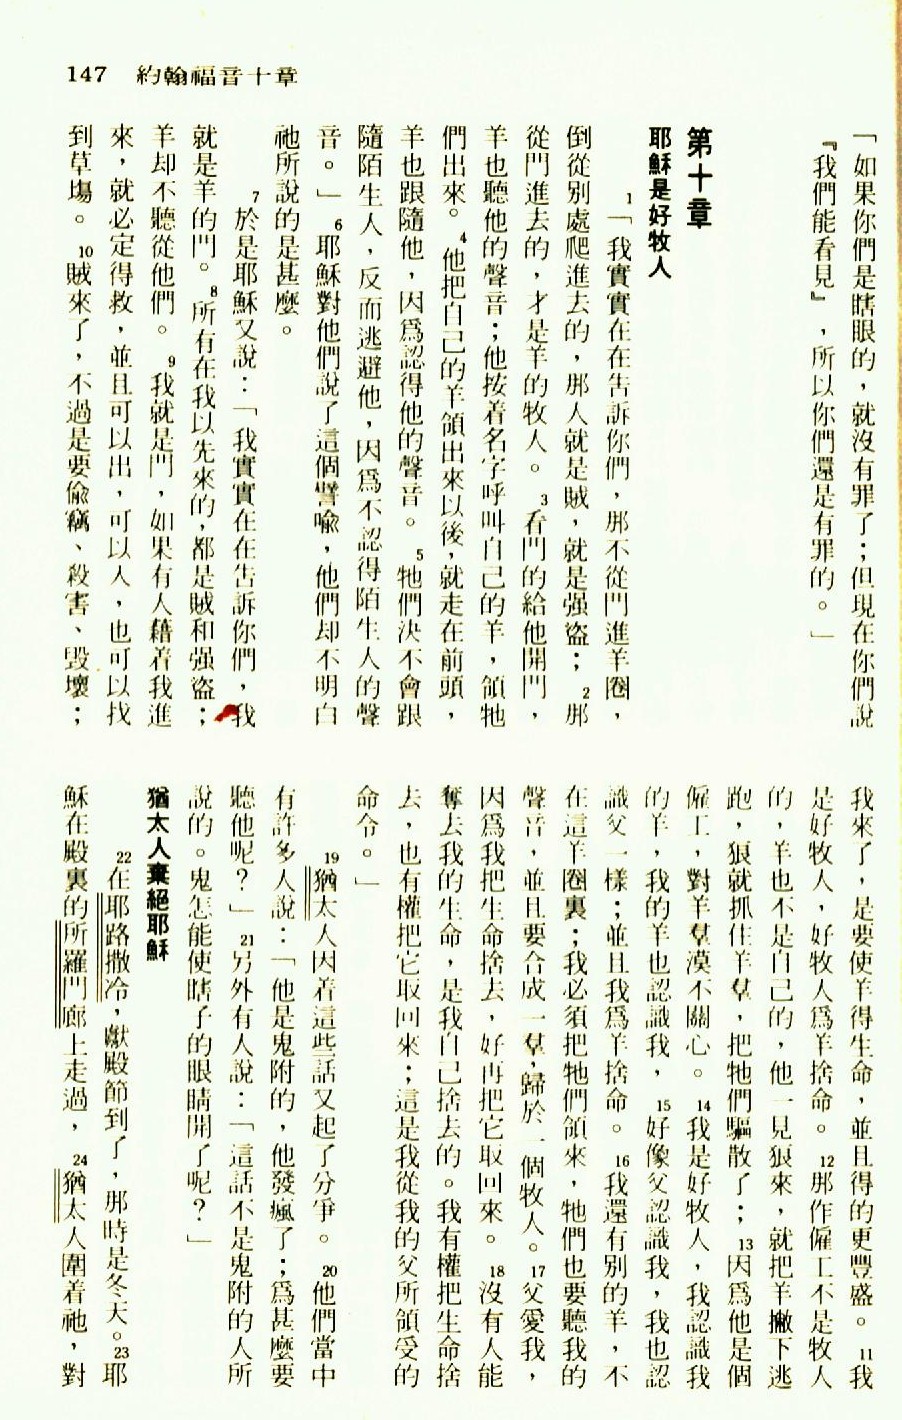 147 約翰福音十章
「如果你們是瞎眼的，就沒有罪了；但現在你們說
『我們能看見』，所以你們還是有罪的。」
第十章
耶穌是好牧人
1「我實實在在告訴你們，那不從門進羊圈，
倒從別處爬進去的，那人就是賊，就是强盜；2那
從門進去的，才是羊的牧人。3看門的給他開門，
羊也聽他的聲音；他按着名字呼叫自己的羊，領牠
們出來。4他把自己的羊領出來以後，就走在前頭，
羊也跟隨他，因爲認得他的聲音。5牠們決不會跟
隨陌生人，反而逃避他，因爲不認得陌生人的聲
音。」6耶穌對他們說了這個譬喩，他們却不明白
祂所說的是甚麼。
7於是耶穌又說：「我實實在在告訴你們，我
就是羊的門。8所有在我以先來的，都是賊和强盜；
羊却不聽從他們。9我就是門，如果有人藉着我進
來，就必定得救，並且可以出，可以入，也可以找
到草塲。10賊來了，不過是要偸竊、殺害、毀壞；
我來了，是要使羊得生命，並且得的更豐盛。11我
是好牧人，好牧人爲羊捨命。12那作僱工不是牧人
的，羊也不是自己的，他一見狼來，就把羊撇下逃
跑，狼就抓住羊羣，把牠們驅散了；13因爲他是個
僱工，對羊羣漠不關心。14我是好牧人，我認識我
的羊，我的羊也認識我，15好像父認識我，我也認
識父一樣；並且我爲羊捨命。16我還有別的羊，不
在這羊圈裏；我必須把牠們領來，牠們也要聽我的
聲音，並且要合成一羣，歸於一個牧人。17父愛我，
因爲我把生命捨去，好再把它取回來。18沒有人能
奪去我的生命，是我自己捨去的。我有權把生命捨
去，也有權把它取回來；這是我從我的父所領受的
命令。」
19猶太人因着這些話又起了分爭。20他們當中
有許多人說：「他是鬼附的，他發瘋了；爲甚麼要
聽他呢？」21另外有人說：「這話不是鬼附的人所
說的。鬼怎能使瞎子的眼睛開了呢？」
猶太人棄絕耶穌
22在耶路撒冷，獻殿節到了，那時是冬天。23耶
穌在殿裏的所羅門廊上走過，24猶太人圍着祂，對